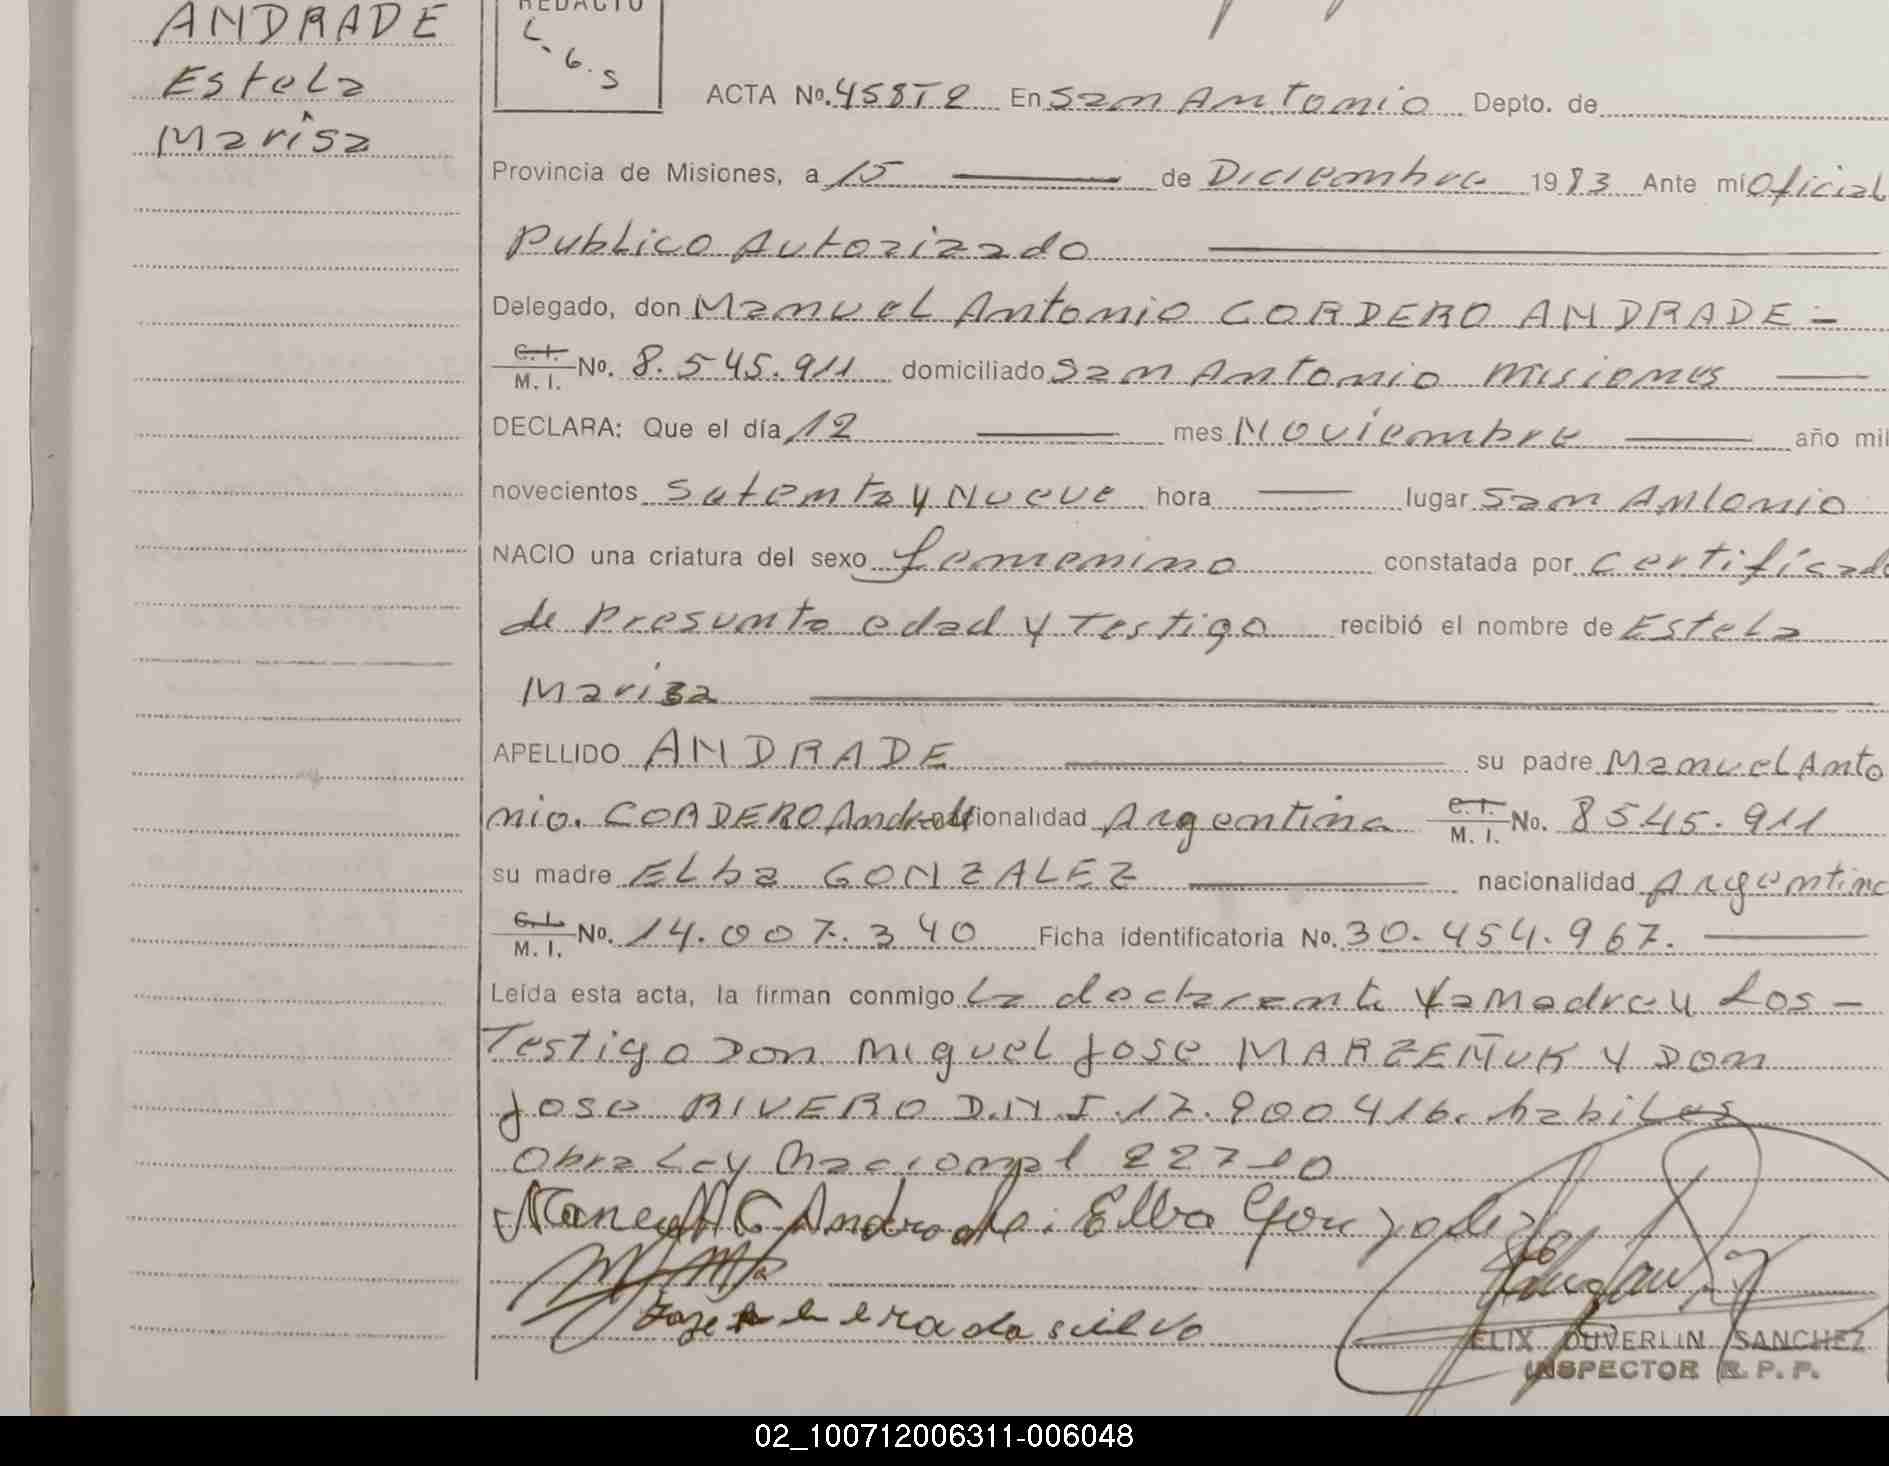 ANDRADE
Estela
Marisa
REDACTO
L.G.S
ACTA No. 458T2 En San Antonio Depto. de
Provincia de Misiones, a 15 de Diciembre 1983 Ante mí Oficial
Publico Autorizado
Delegado, don Manuel Antonio CORDERO ANDRADE -
C.I. M. I. No. 8.545.911 domiciliado San Antonio Misiones
DECLARA: Que el día 12 mes Noviembre año mil
novecientos Setenta y Nueve hora lugar San Antonio
NACIO una criatura del sexo femenino constatada por Certificado
de Presunta edad y Testigo recibió el nombre de Estela
Marisa
APELLIDO ANDRADE su padre Manuel Anto
nio. CORDERO Andrade nacionalidad Argentina C.I. M. I. No. 8545.911
su madre Elba GONZALEZ nacionalidad Argentina
C.I. M. I. No. 14.007.340 Ficha identificatoria No. 30.454.967.
Leída esta acta, la firman conmigo La declarante y la Madre y Los -
Testigo Don Miguel Jose MARZEÑUK y Don
Jose RIVERO D.N.I. 17.900416. habiles
Obra Ley Nacional 22710
Andrade. Elba Gonzalez
Jose da silva
FELIX DUVERLIN SANCHEZ
INSPECTOR R. P. P.
02_100712006311-006048